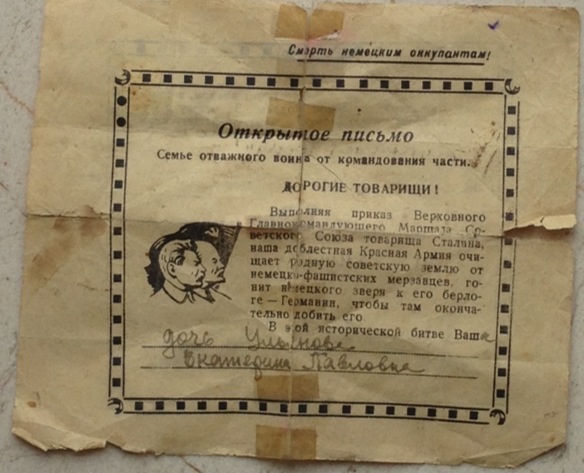 Смерть немецким оккупантам!
Открытое письмо
Семье отважного воина от командования части.
ДОРОГИЕ ТОВАРИЩИ!
Выполняя приказ Верховного
Главнокомандующего Маршала Со-
ветского Союза товарища Сталина,
ваша доблестная Красная Армия очи-
щает родную советскую землю от
немецко-фашистских мерзавцев, го-
нит немецкого зверя к его берло-
ге — Германии, чтобы там оконча-
тельно добить его
В этой исторической битве Ваша
дочь Ульянова
Екатерина Павловна